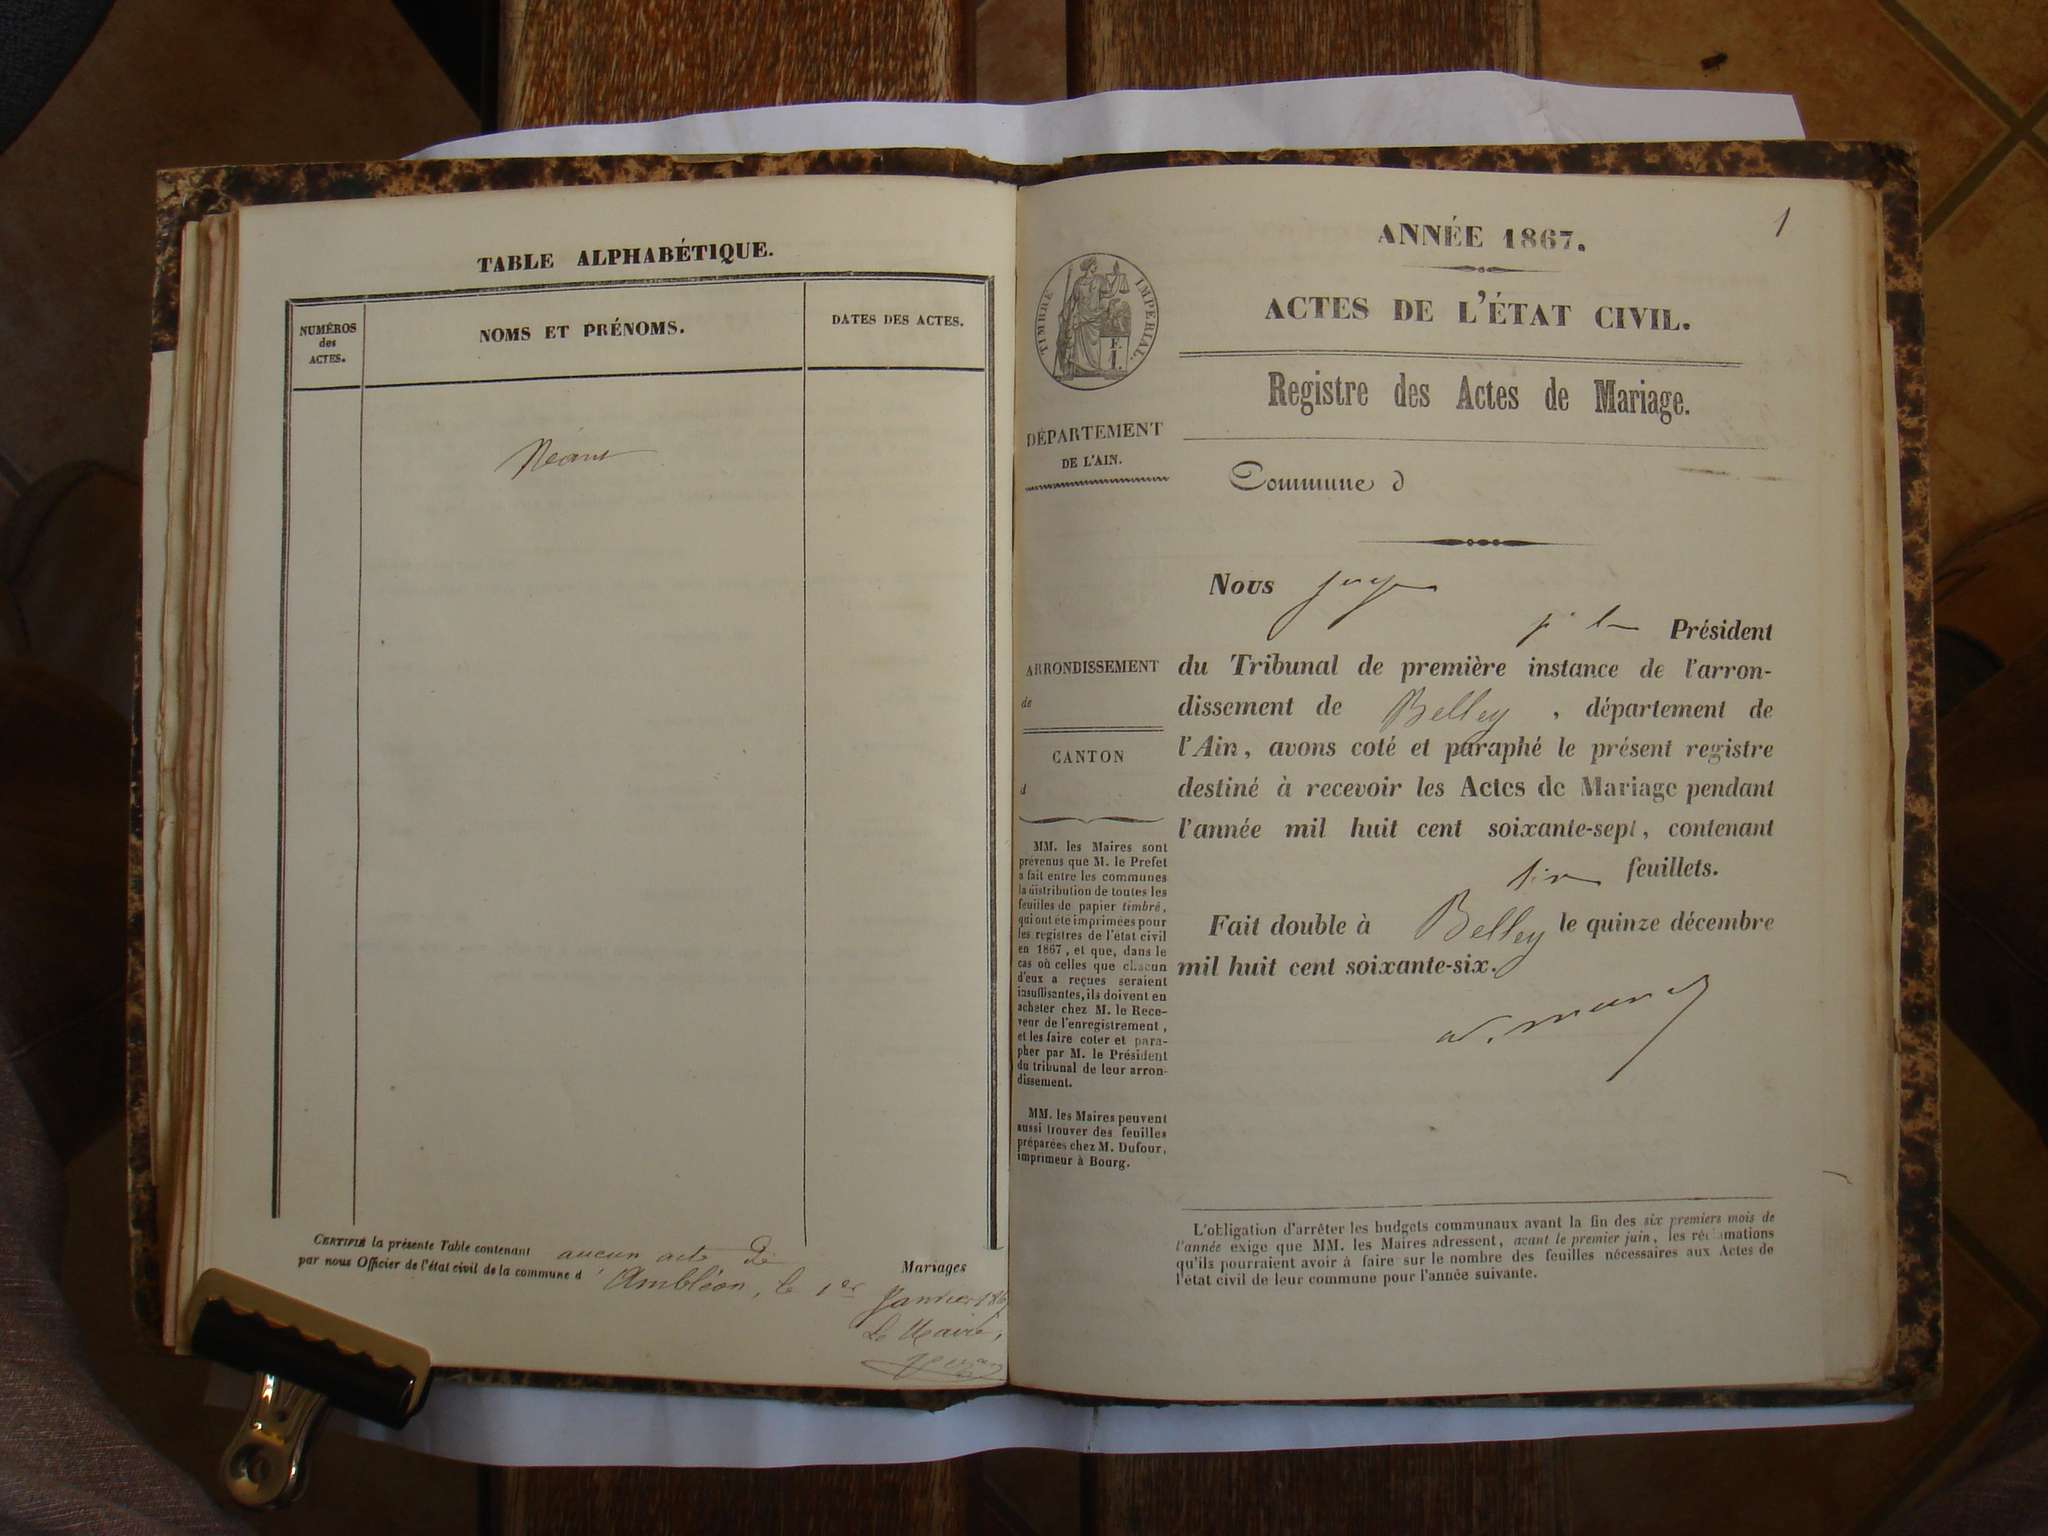 TABLE ALPHABÉTIQUE.
NUMÉROS
des
ACTES.
NOMS ET PRÉNOMS.
DATES DES ACTES.
Néant
CERTIFIÉ la présente Table contenant aucun acte de Mariages
par nous Officier de l'état civil de la commune d'Ambléon, le 1er Janvier 186
Le Maire,
1
ANNÉE 1867.
ACTES DE L'ÉTAT CIVIL.
Registre des Actes de Mariage.
Commune d
TIMBRE IMPÉRIAL.
F.
1.
DÉPARTEMENT
DE L'AIN.
ARRONDISSEMENT
de
CANTON
d
MM. les Maires sont
prévenus que M. le Prefet
a fait entre les communes
la distribution de toutes les
feuilles de papier timbré,
qui ont été imprimées pour
les registres de l'état civil
en 1867, et que, dans le
cas où celles que chacun
d'eux a reçues seraient
insuffisantes, ils doivent en
acheter chez M. le Rece-
veur de l'enregistrement,
et les faire coter et para-
pher par M. le Président
du tribunal de leur arron-
dissement.
MM. les Maires peuvent
aussi trouver des feuilles
préparées chez M. Dufour,
imprimeur à Bourg.
Nous juge
Président
du Tribunal de première instance de l'arron-
dissement de Belley, département de
l'Ain, avons coté et paraphé le présent registre
destiné à recevoir les Actes de Mariage pendant
l'année mil huit cent soixante-sept, contenant
six feuillets.
Fait double à Belley le quinze décembre
mil huit cent soixante-six.
L'obligation d'arrêter les budgets communaux avant la fin des six premiers mois de
l'année exige que MM. les Maires adressent, avant le premier juin, les réclamations
qu'ils pourraient avoir à faire sur le nombre des feuilles nécessaires aux Actes de
l'état civil de leur commune pour l'année suivante.